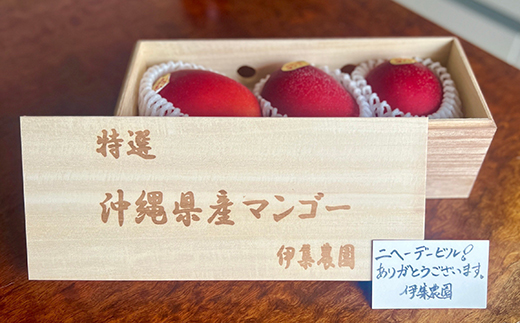 特選
沖縄県産マンゴー
伊集農園
ニヘーデービル
ありがとうございます。
伊集農園